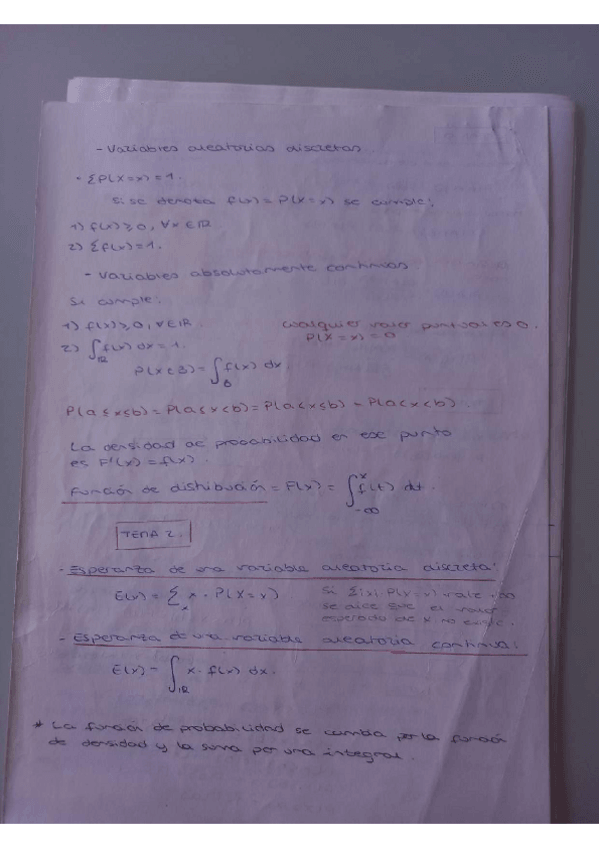 - Variables aleatorias discretas
- ΣP(X=x)=1.
Si se denota f(x)=P(X=x) se cumple:
1) f(x)≥0, ∀x∈ℝ
2) Σf(x)=1.
- Variables absolutamente continuas
Si cumple:
1) f(x)≥0, ∀∈ℝ. cualquier valor puntual es 0.
P(X=x)=0
2) ∫ℝ f(x) dx=1.
P(X∈B)=∫B f(x) dx.
P(a≤x≤b)=P(a≤x<b)=P(a<x≤b)=P(a<x<b).
La densidad de probabilidad en ese punto
es F'(x)=f(x).
Función de distribución = F(x)= ∫-∞^x f(t) dt.
TEMA 2.
- Esperanza de una variable aleatoria discreta:
E(x)= Σx x · P(X=x) Si Σ|x|·P(X=x) vale +∞
se dice que el valor
esperado de x no existe.
- Esperanza de una variable aleatoria continua:
E(x)= ∫ℝ x · f(x) dx.
* La función de probabilidad se cambia por la función
de densidad y la suma por una integral.